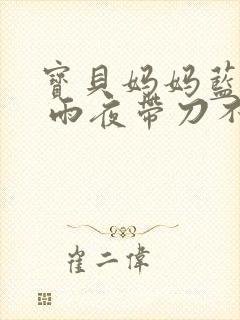 寶貝妈妈藍
雨夜帶刀不
崔二偉